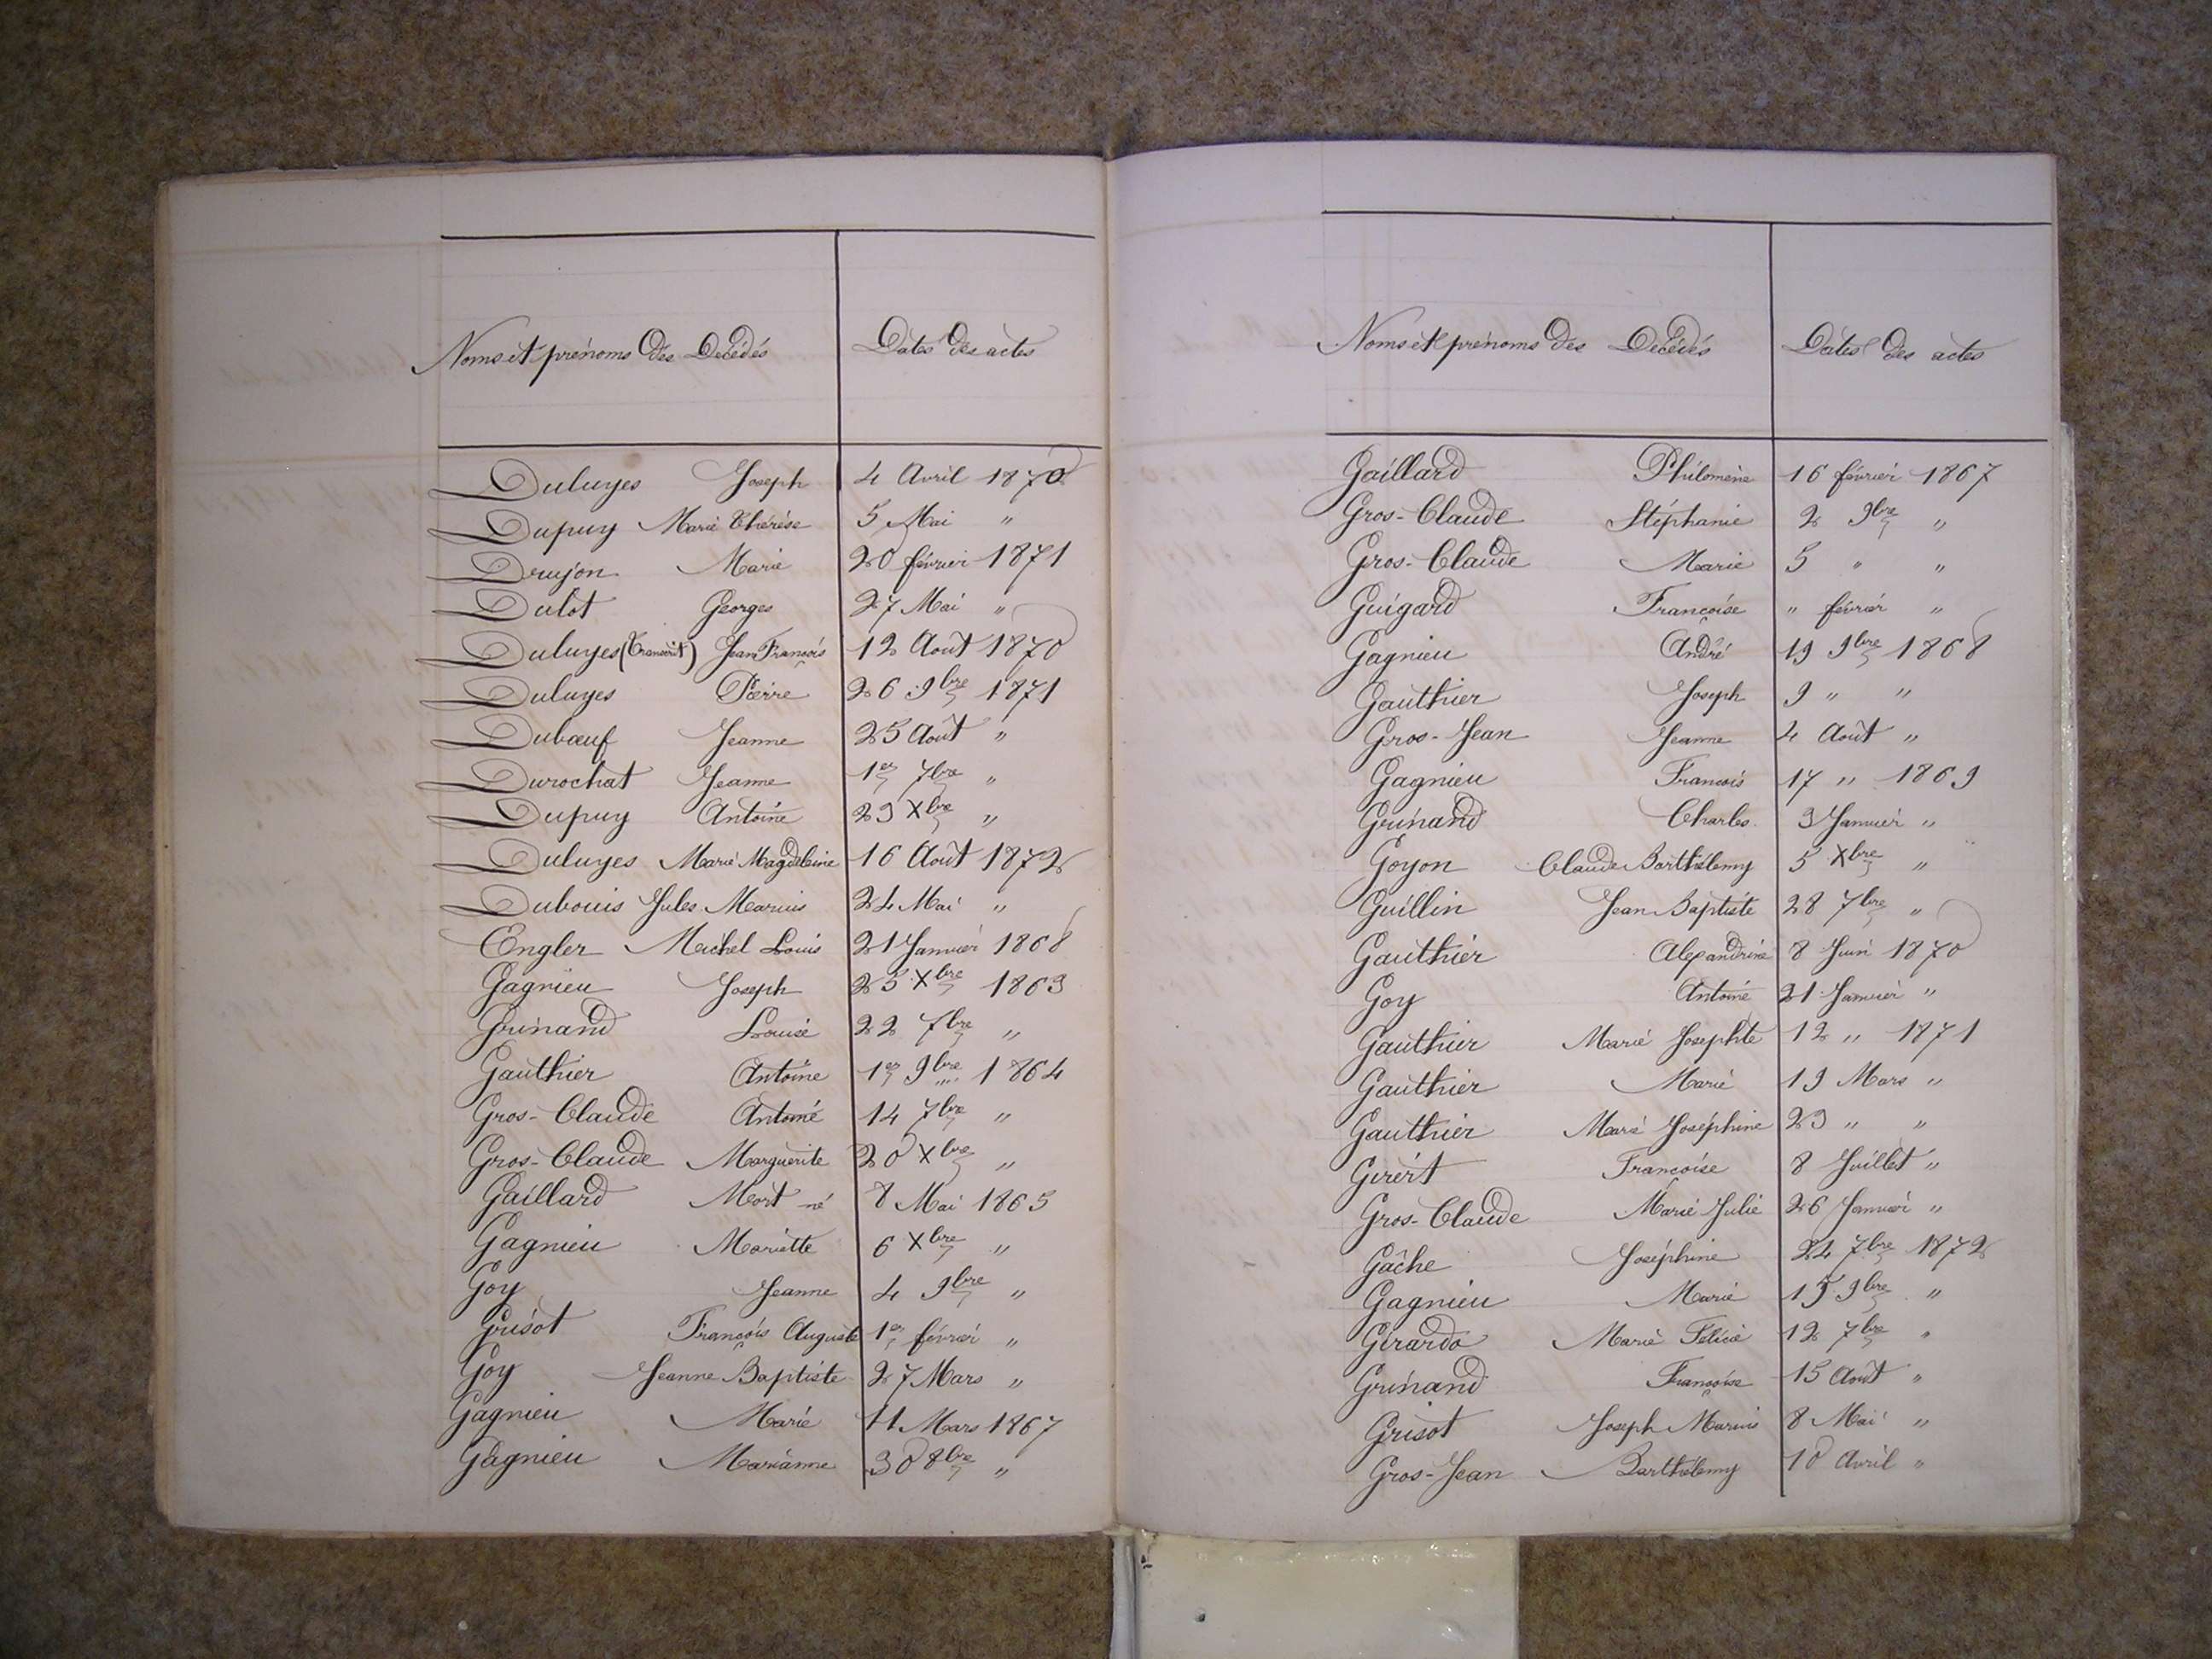 Noms et prénoms des Décédés Dates des actes
Duluyes Joseph 4 Avril 1870
Dupuy Marie Thérèse 5 Mai "
Drujon Marie 20 février 1871
Dulot Georges 27 Mai "
Duluyes (Transcrit) Jean François 12 Août 1870
Duluyes Pierre 26 9bre 1871
Dubœuf Jeanne 25 Août "
Durochat Jeanne 1er 7bre "
Dupuy Antoine 23 Xbre "
Duluyes Marie Magdeleine 16 Août 1872
Dubouis Jules Marius 24 Mai "
Engler Michel Louis 21 Janvier 1868
Gagnieu Joseph 25 Xbre 1863
Grinand Louise 22 7bre "
Gauthier Antoine 1er 9bre 1864
Gros-Claude Antoine 14 7bre "
Gros-Claude Marguerite 20 Xbre "
Gaillard Mort né 8 Mai 1865
Gagnieu Mariette 6 Xbre "
Goy Jeanne 4 9bre "
Grisot François Auguste 1er février "
Goy Jeanne Baptiste 27 Mars "
Gagnieu Marie 11 Mars 1867
Gagnieu Marianne 30 8bre "
Noms et prénoms des Décédés Dates des actes
Gaillard Philomène 16 février 1867
Gros-Claude Stéphanie 2 9bre "
Gros-Claude Marie 5 " "
Guigard Françoise " février "
Gagnieu André 19 9bre 1868
Gauthier Joseph 9 " "
Gros-Jean Jeanne 4 Août "
Gagnieu François 17 " 1869
Grinand Charles 3 Janvier "
Goyon Claude Barthélemy 5 Xbre "
Guillin Jean Baptiste 28 7bre "
Gauthier Alexandrine 8 Juin 1870
Goy Antoine 21 Janvier "
Gauthier Marie Josephte 12 " 1871
Gauthier Marie 19 Mars "
Gauthier Marie Joséphine 23 " "
Girert Françoise 8 Juillet "
Gros-Claude Marie Julie 26 Janvier "
Gâche Joséphine 24 7bre 1872
Gagnieu Marie 15 9bre "
Girardo Marie Félicie 12 7bre "
Grinand Françoise 15 Août "
Grisot Joseph Marius 8 Mai "
Gros-Jean Barthélemy 10 Avril "